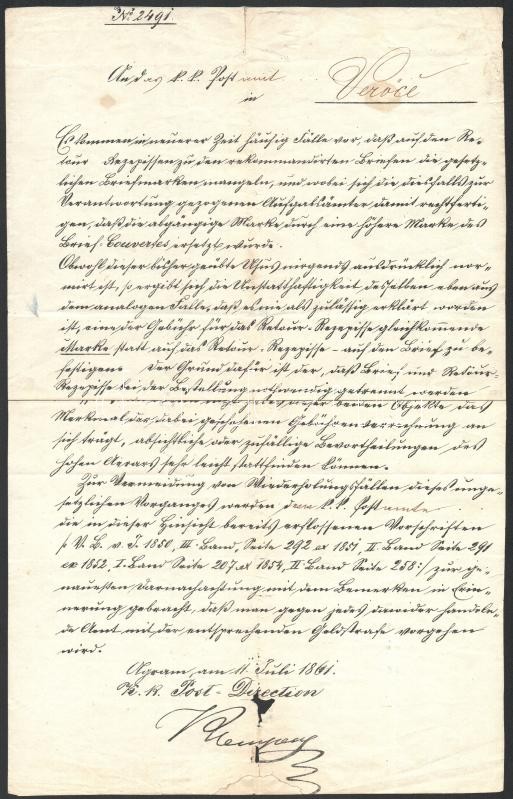 No. 2491.
An das k. k. Postamt
in Veröče
Es kommen in neuerer Zeit häufig Fälle vor, daß auf den Re-
tour Rezepissen zu den rekommandirten Briefen die gesetz-
lichen Briefmarken mangeln, und wobei sich die diesfalls zur
Verantwortung gezogenen Aufgabsämter damit rechtferti-
gen, daß die abgängige Marke durch eine höhere Marke des
Brief-Couvertes ersetzt wurde.
Obwohl dieser bisher geübte Usus nirgends ausdrücklich nor-
mirt ist, so ergibt sich die Unstatthaftigkeit desselben eben aus
dem analogen Falle, daß es nie als zulässig erklärt worden
ist, eine der Gebühr für das Retour-Rezepisse gleichkommende
Marke statt auf das Retour-Rezepisse – auf den Brief zu be-
festigen. Der Grund dafür ist der, daß Brief und Retour-
Rezepisse bei der Bestellung nothwendig getrennt werden
beiden Objekte das
Merkmal der dabei geschehenen Gebührenentrichtung an
sich trägt, absichtliche oder zufällige Bevortheilungen des
hohen Aerars sehr leicht stattfinden können.
Zur Vermeidung von Wiederholungsfällen dieses unge-
setzlichen Vorganges werden dem k. k. Postamte
die in dieser Hinsicht bereits erflossenen Vorschriften
/: V. B. v. J. 1850, III. Band, Seite 292 ex 1851, II. Band Seite 291
ex 1852, I. Band Seite 207 et 1854, II. Band Seite 258 :/ zur ge-
nauesten Darnachachtung mit dem Bemerken in Erin-
nerung gebracht, daß man gegen jedes dawider handeln-
de Amt mit der entsprechenden Geldstrafe vorgehen
wird.
Agram, am 11. Juli 1861.
K. k. Post-Direction